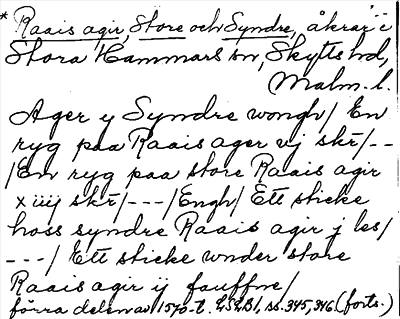 * Raais agir, Store och Syndre, åkrar i
Stora Hammars sn, Skytts hd,
Malm. l.
Ager y Syndre wongh/ En
ryg paa Raais ager vj skr̄/--
/En ryg paa store Raais agir
x iiij skr̄/---/Engh/ Ett sticke
hoss syndre Raais agir j les/
---/ Ett sticke wnder store
Raais agir ij fauffne/
förra delen av 1570-t. LSLB1, ss. 345, 346 (forts.)